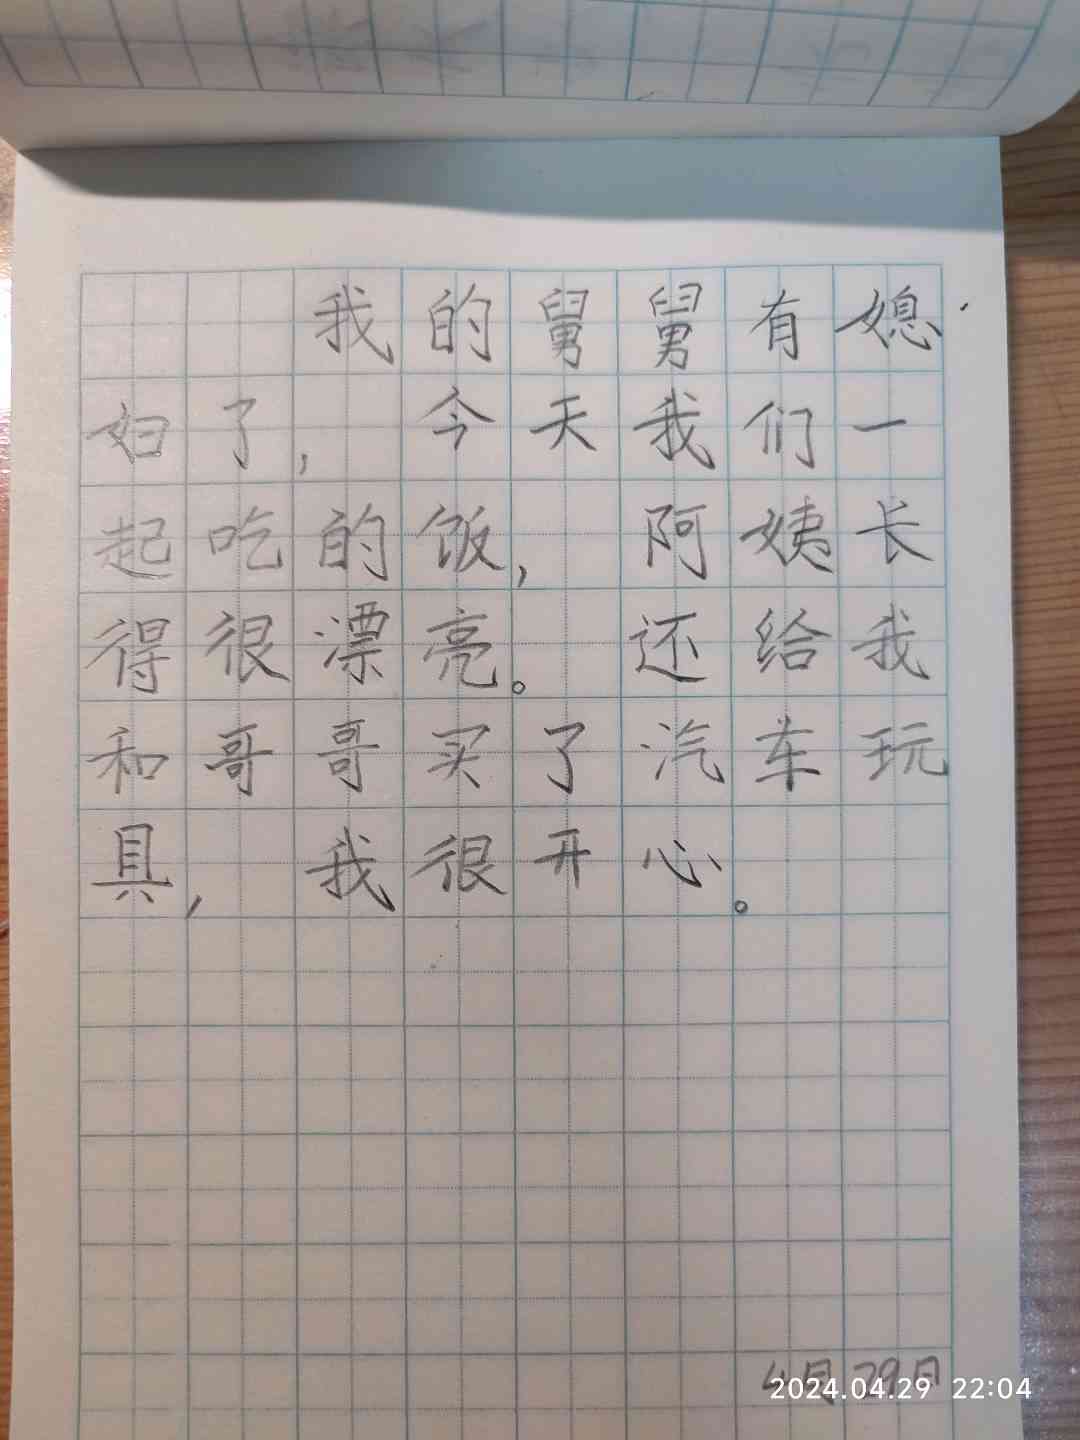 我的舅舅有媳
妇了，今天我们一
起吃的饭，阿姨长
得很漂亮。还给我
和哥哥买了汽车玩
具，我很开心。
4月29日
2024.04.29 22:04